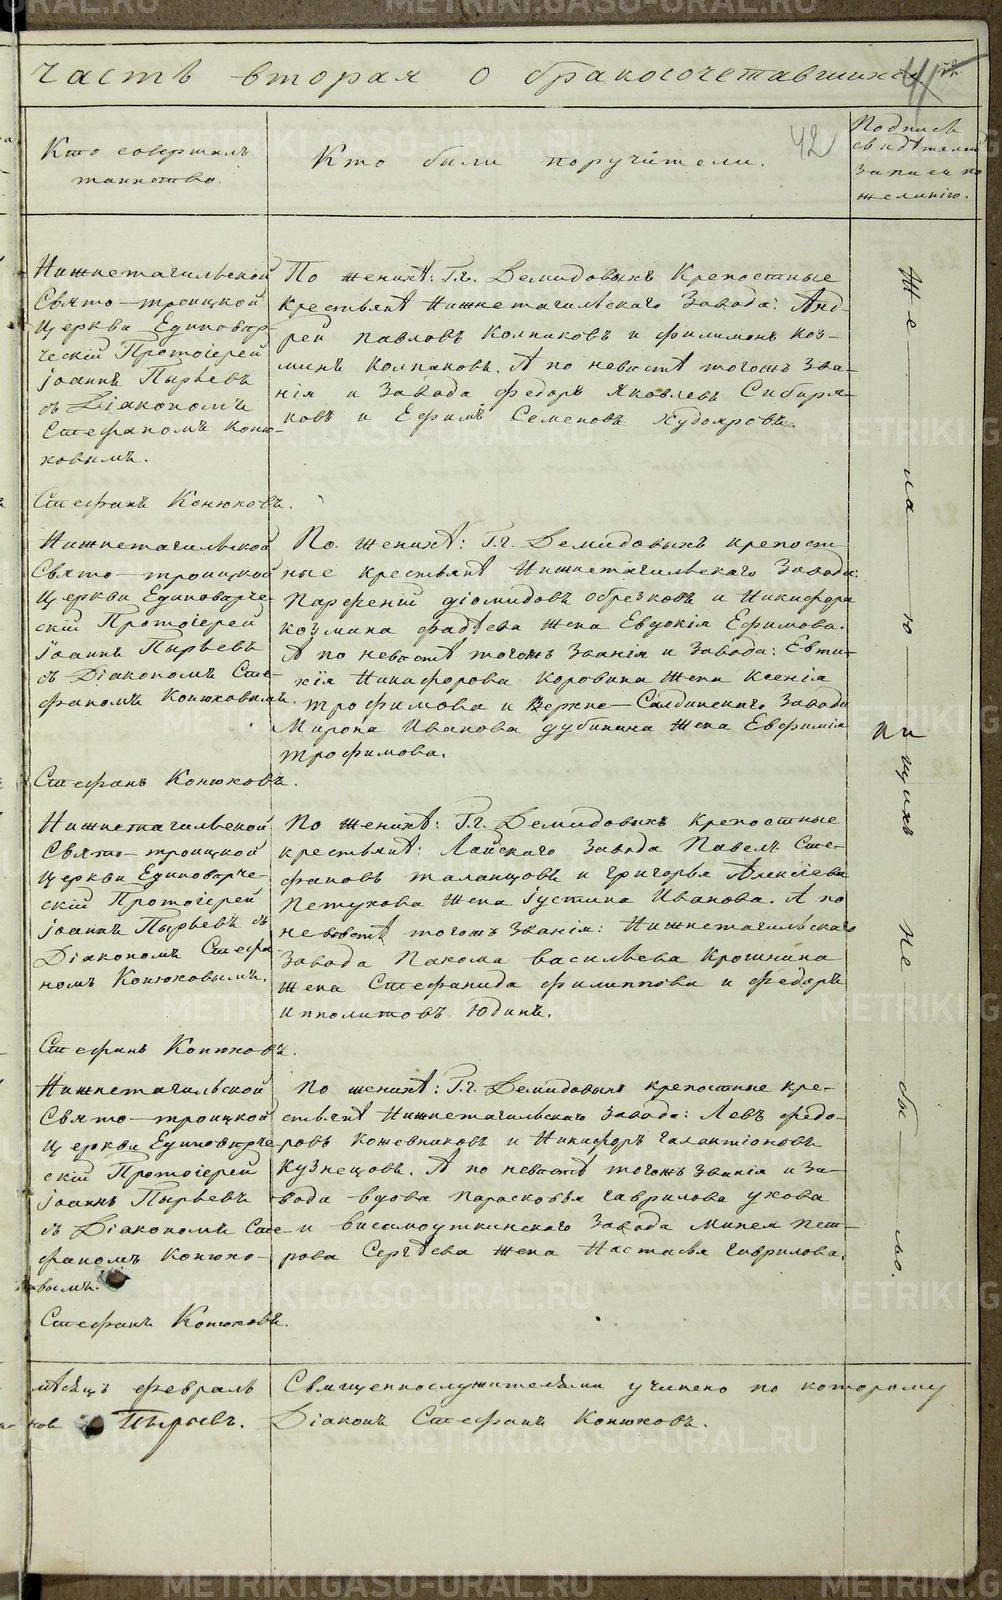 Часть вторая о бракосочетавшихся
41
42
Кто совершалъ
таинство.
Кто были поручители.
Подпись
свидѣтелей
записи по
желанію.
Нижнетагильской
Свято-троицкой
Церкви Единовѣр-
ческій Протоіерей
іоаннъ Пырьевъ
съ Діакономъ
Стефаномъ Коню-
ховымъ.
Стефанъ Конюховъ.
По женихѣ: Г.г. Демидовыхъ Крепостные
крестьянѣ Нижнетагильскаго Завода: Анд-
рей павловъ Колпаковъ и филимонъ коз-
минъ Колпаковъ. А по невѣстѣ тогожъ Зва-
нія и Завода федоръ Яковлевъ Сибиря-
ковъ и Ефимъ Семеновъ Худояровъ.
Нижнетагильской
Свято-троицкой
Церкви Единовѣрче-
скій Протоіерей
іоаннъ Пырьевъ
съ Діакономъ Сте-
фаномъ Конюховымъ.
Стефанъ Конюховъ.
По женихѣ: Г.г. Демидовыхъ крепост-
ные крестьянѣ Нижнетагильскаго Завода:
Парфеній діомидовъ обрезковъ и Никифора
козмина фадѣева жена Евдокія Ефимова.
А по невѣстѣ тогожъ Званія и Завода: Евти-
хія Никифорова Коровина жена Ксенія
трофимова и Верхне-Салдинскаго Завода
Мирона Иванова дубинина жена Евфимія
трофимова.
Нижнетагильской
Свято-троицкой
Церкви Единовѣрче-
скій Протоіерей
іоаннъ Пырьевъ съ
Діакономъ Стефа
номъ Конюховымъ.
Стефанъ Конюховъ.
По женихѣ: Г.г. Демидовыхъ крепостные
крестьянѣ: Лайскаго Завода Павелъ Сте-
фановъ таланцовъ и григорья Алексіева
Петухова жена іустина Иванова. А по
невѣстѣ тогожъ Званія: Нижнетагильскаго
Завода Пахома васильева Крошнина
жена Стефанида филиппова и федоръ
ипполитовъ Юдинъ.
Нижнетагильской
Свято-троицкой
Церкви Единовѣрче-
скій Протоіерей
іоаннъ Пырьевъ
съ Діакономъ Сте-
фаномъ Конюхо-
вымъ.
Стефанъ Конюховъ.
По женихѣ: Г.г. Демидовыхъ крепостные кре-
стьянѣ Нижнетагильскаго Завода: Левъ федо-
ровъ Кожевниковъ и Никифоръ галактіоновъ
Кузнецовъ. А по невѣстѣ тогожъ званія и за-
вода вдова парасковья гаврилова ухова
и висимоуткинскаго Завода Минея пет-
рова Сергѣева жена Настасья гаврилова.
Же-ла-ю-щихъ не было.
мѣсяцъ февраль Священнослужителями учинено по которому
Пырьевъ. Діаконъ Стефанъ Конюховъ.
METRIKI.GASO-URAL.RU